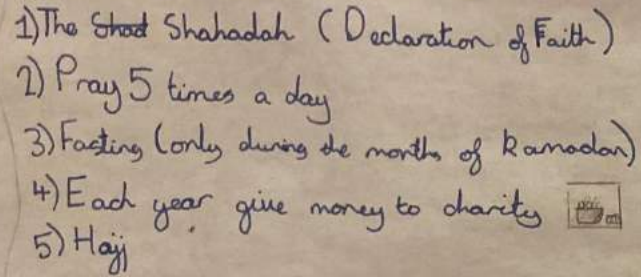 1) The Shad Shahadah (Declaration of Faith)
2) Pray 5 times a day
3) Fasting (only during the months of Ramadan)
4) Each year give money to charity
5) Hajj